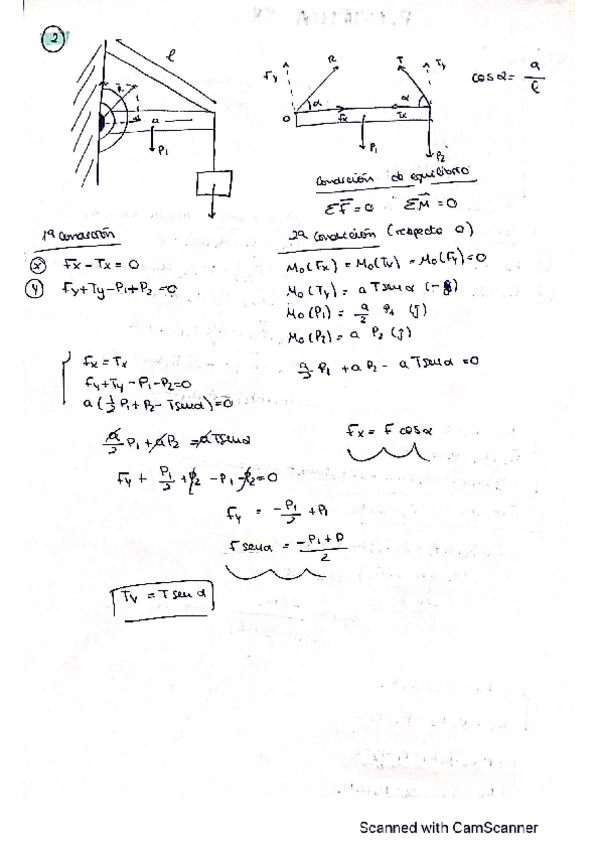 2
l
a
P₁
Fy R T Ty
cos α = a/l
α α
O Fx Tx
P₁
P₂
Condición de equilibrio
ΣF⃗ = 0 ΣM⃗ = 0
1ª Condición
2ª Condición (respecto O)
x Fx - Tx = 0
y Fy + Ty - P₁ + P₂ = 0
Mo (Fx) = Mo (Tx) = Mo (Fy) = 0
Mo (Ty) = a T sen α
Mo (P₁) = a/2 P₁ (j)
Mo (P₂) = a P₂ (j)
Fx = Tx
Fy + Ty - P₁ - P₂ = 0
a (1/2 P₁ + P₂ - T sen α) = 0
a/2 P₁ + a P₂ - a T sen α = 0
a/2 P₁ + a P₂ = a T sen α
Fx = F cos α
Fy + P₁/2 + P₂ - P₁ - P₂ = 0
Fy = -P₁/2 + P₁
F sen α = (-P₁ + P)/2
Ty = T sen α
Scanned with CamScanner